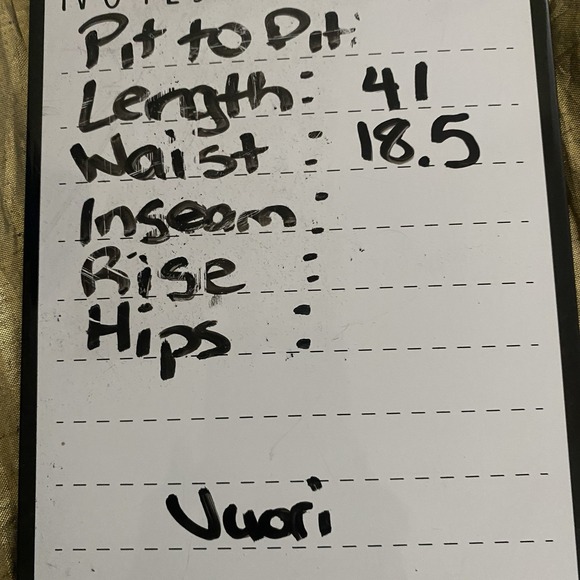 NOTES
Pit to Pit:
Length: 41
Waist : 18.5
Inseam :
Rise :
Hips :
Vuori